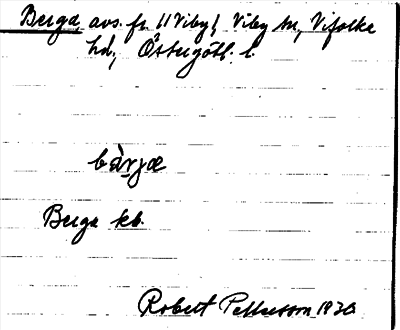 Berga, avs. fr. 11 Viby, Viby sn, Vifolka
hd, Östergötl. l.
bàrjæ
Berga kb.
Robert Pettersson 1930